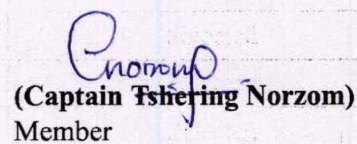 (Captain Tshering Norzom)
Member